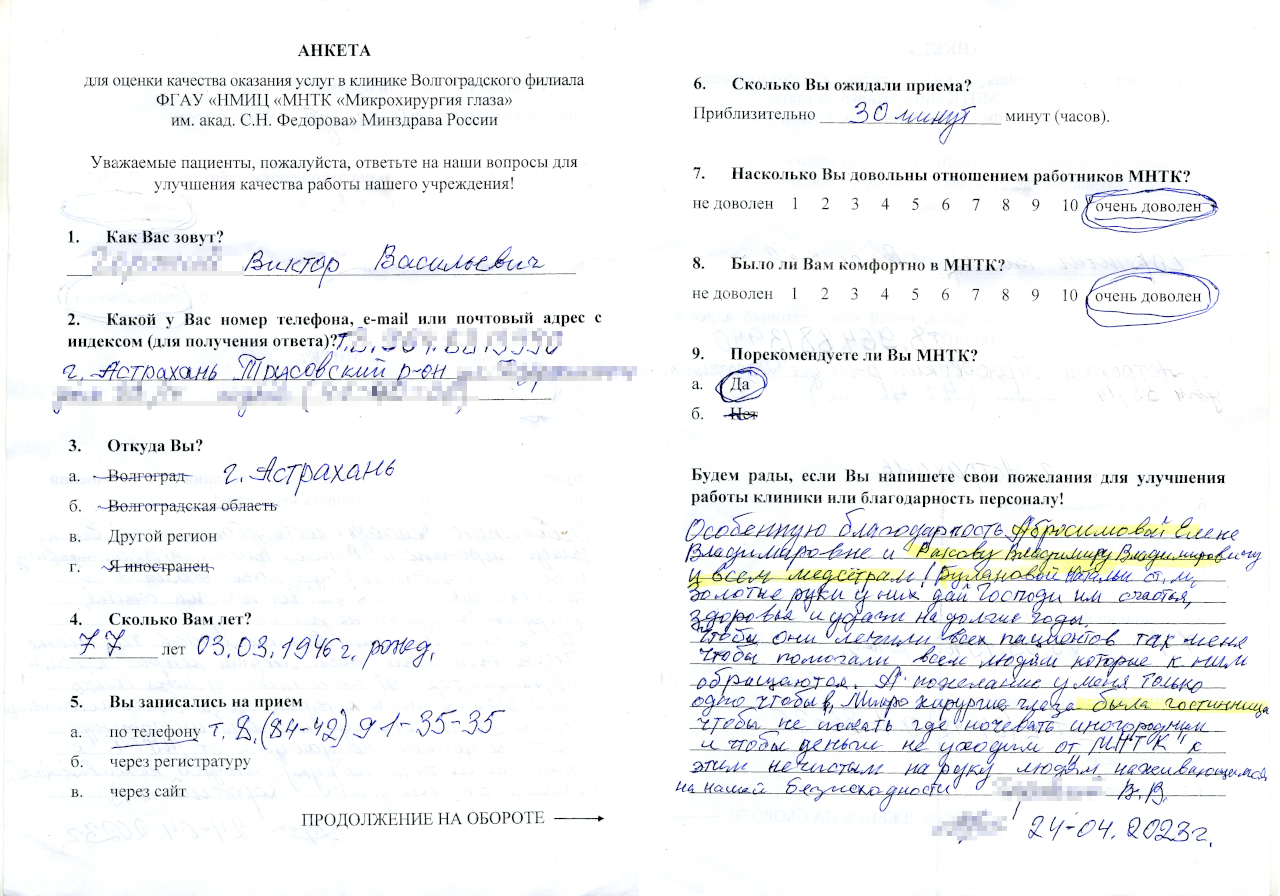 АНКЕТА
для оценки качества оказания услуг в клинике Волгоградского филиала
ФГАУ «НМИЦ «МНТК «Микрохирургия глаза»
им. акад. С.Н. Федорова» Минздрава России
Уважаемые пациенты, пожалуйста, ответьте на наши вопросы для
улучшения качества работы нашего учреждения!
1. Как Вас зовут?
Виктор Васильевич
2. Какой у Вас номер телефона, e-mail или почтовый адрес с
индексом (для получения ответа)?
г. Астрахань Трусовский р-он
3. Откуда Вы?
а. Волгоград г. Астрахань
б. Волгоградская область
в. Другой регион
г. Я иностранец
4. Сколько Вам лет?
77 лет 03.03.1946 г. рожд.
5. Вы записались на прием
а. по телефону т. 8.(84-42) 91-35-35
б. через регистратуру
в. через сайт
ПРОДОЛЖЕНИЕ НА ОБОРОТЕ
6. Сколько Вы ожидали приема?
Приблизительно 30 минут минут (часов).
7. Насколько Вы довольны отношением работников МНТК?
не доволен 1 2 3 4 5 6 7 8 9 10 очень доволен
8. Было ли Вам комфортно в МНТК?
не доволен 1 2 3 4 5 6 7 8 9 10 очень доволен
9. Порекомендуете ли Вы МНТК?
а. Да
б. Нет
Будем рады, если Вы напишете свои пожелания для улучшения
работы клиники или благодарность персоналу!
Особенную благодарность Абросимовой Елене
Владимировне и Владимиру Владимировичу
и всем медсёстрам! Булановой Натальи ст. м/
золотые руки у них дай Господи им счастья,
здоровья и удачи на долгие годы.
Чтобы они лечили всех пациентов так меня
чтобы помогали всем людям которые к ним
обращаются. А пожелание у меня только
одно чтобы в, Микрохирургие глаза была гостинница
чтобы не искать где ночевать иногородним
и чтобы деньги не уходили от "МНТК" к
этим нечистым на руку людям наживающимся
на нашей безисходности В.В.
24-04.2023г.